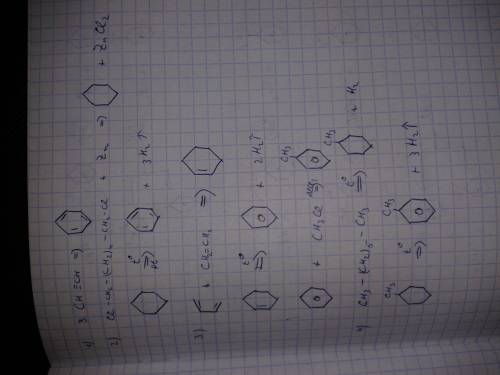 1) 3 CH≡CH =>
2) Cl-CH₂-(CH₂)₄-CH₂-Cl + Zn => + ZnCl₂
t° => Pt + 3H₂↑
3) + CH₂=CH₂ =>
t° => + 2H₂↑
+ CH₃Cl => AlCl₃ CH₃
4) CH₃-(CH₂)₅-CH₃ t° => CH₃ + H₂
CH₃ t° => CH₃ + 3H₂↑